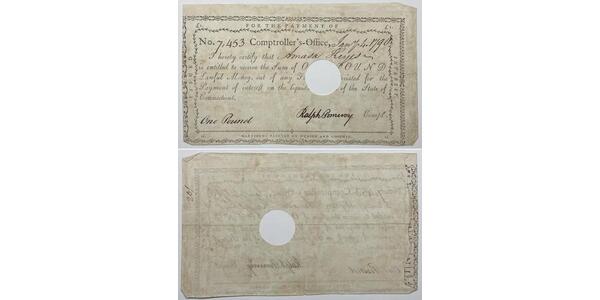 FOR THE PAYMENT OF
No. 7,453 Comptroller's-Office, Jany 4 1790
I hereby certify that Amasa Keyes
is entitled to receive the Sum of O OUND
Lawful Money, out of any F riated for the
Payment of interest on the liquid of the State of
Connecticut.
One Pound Ralph Pomeroy Compt.
HARTFORD: PRINTED BY HUDSON AND GOODWIN.